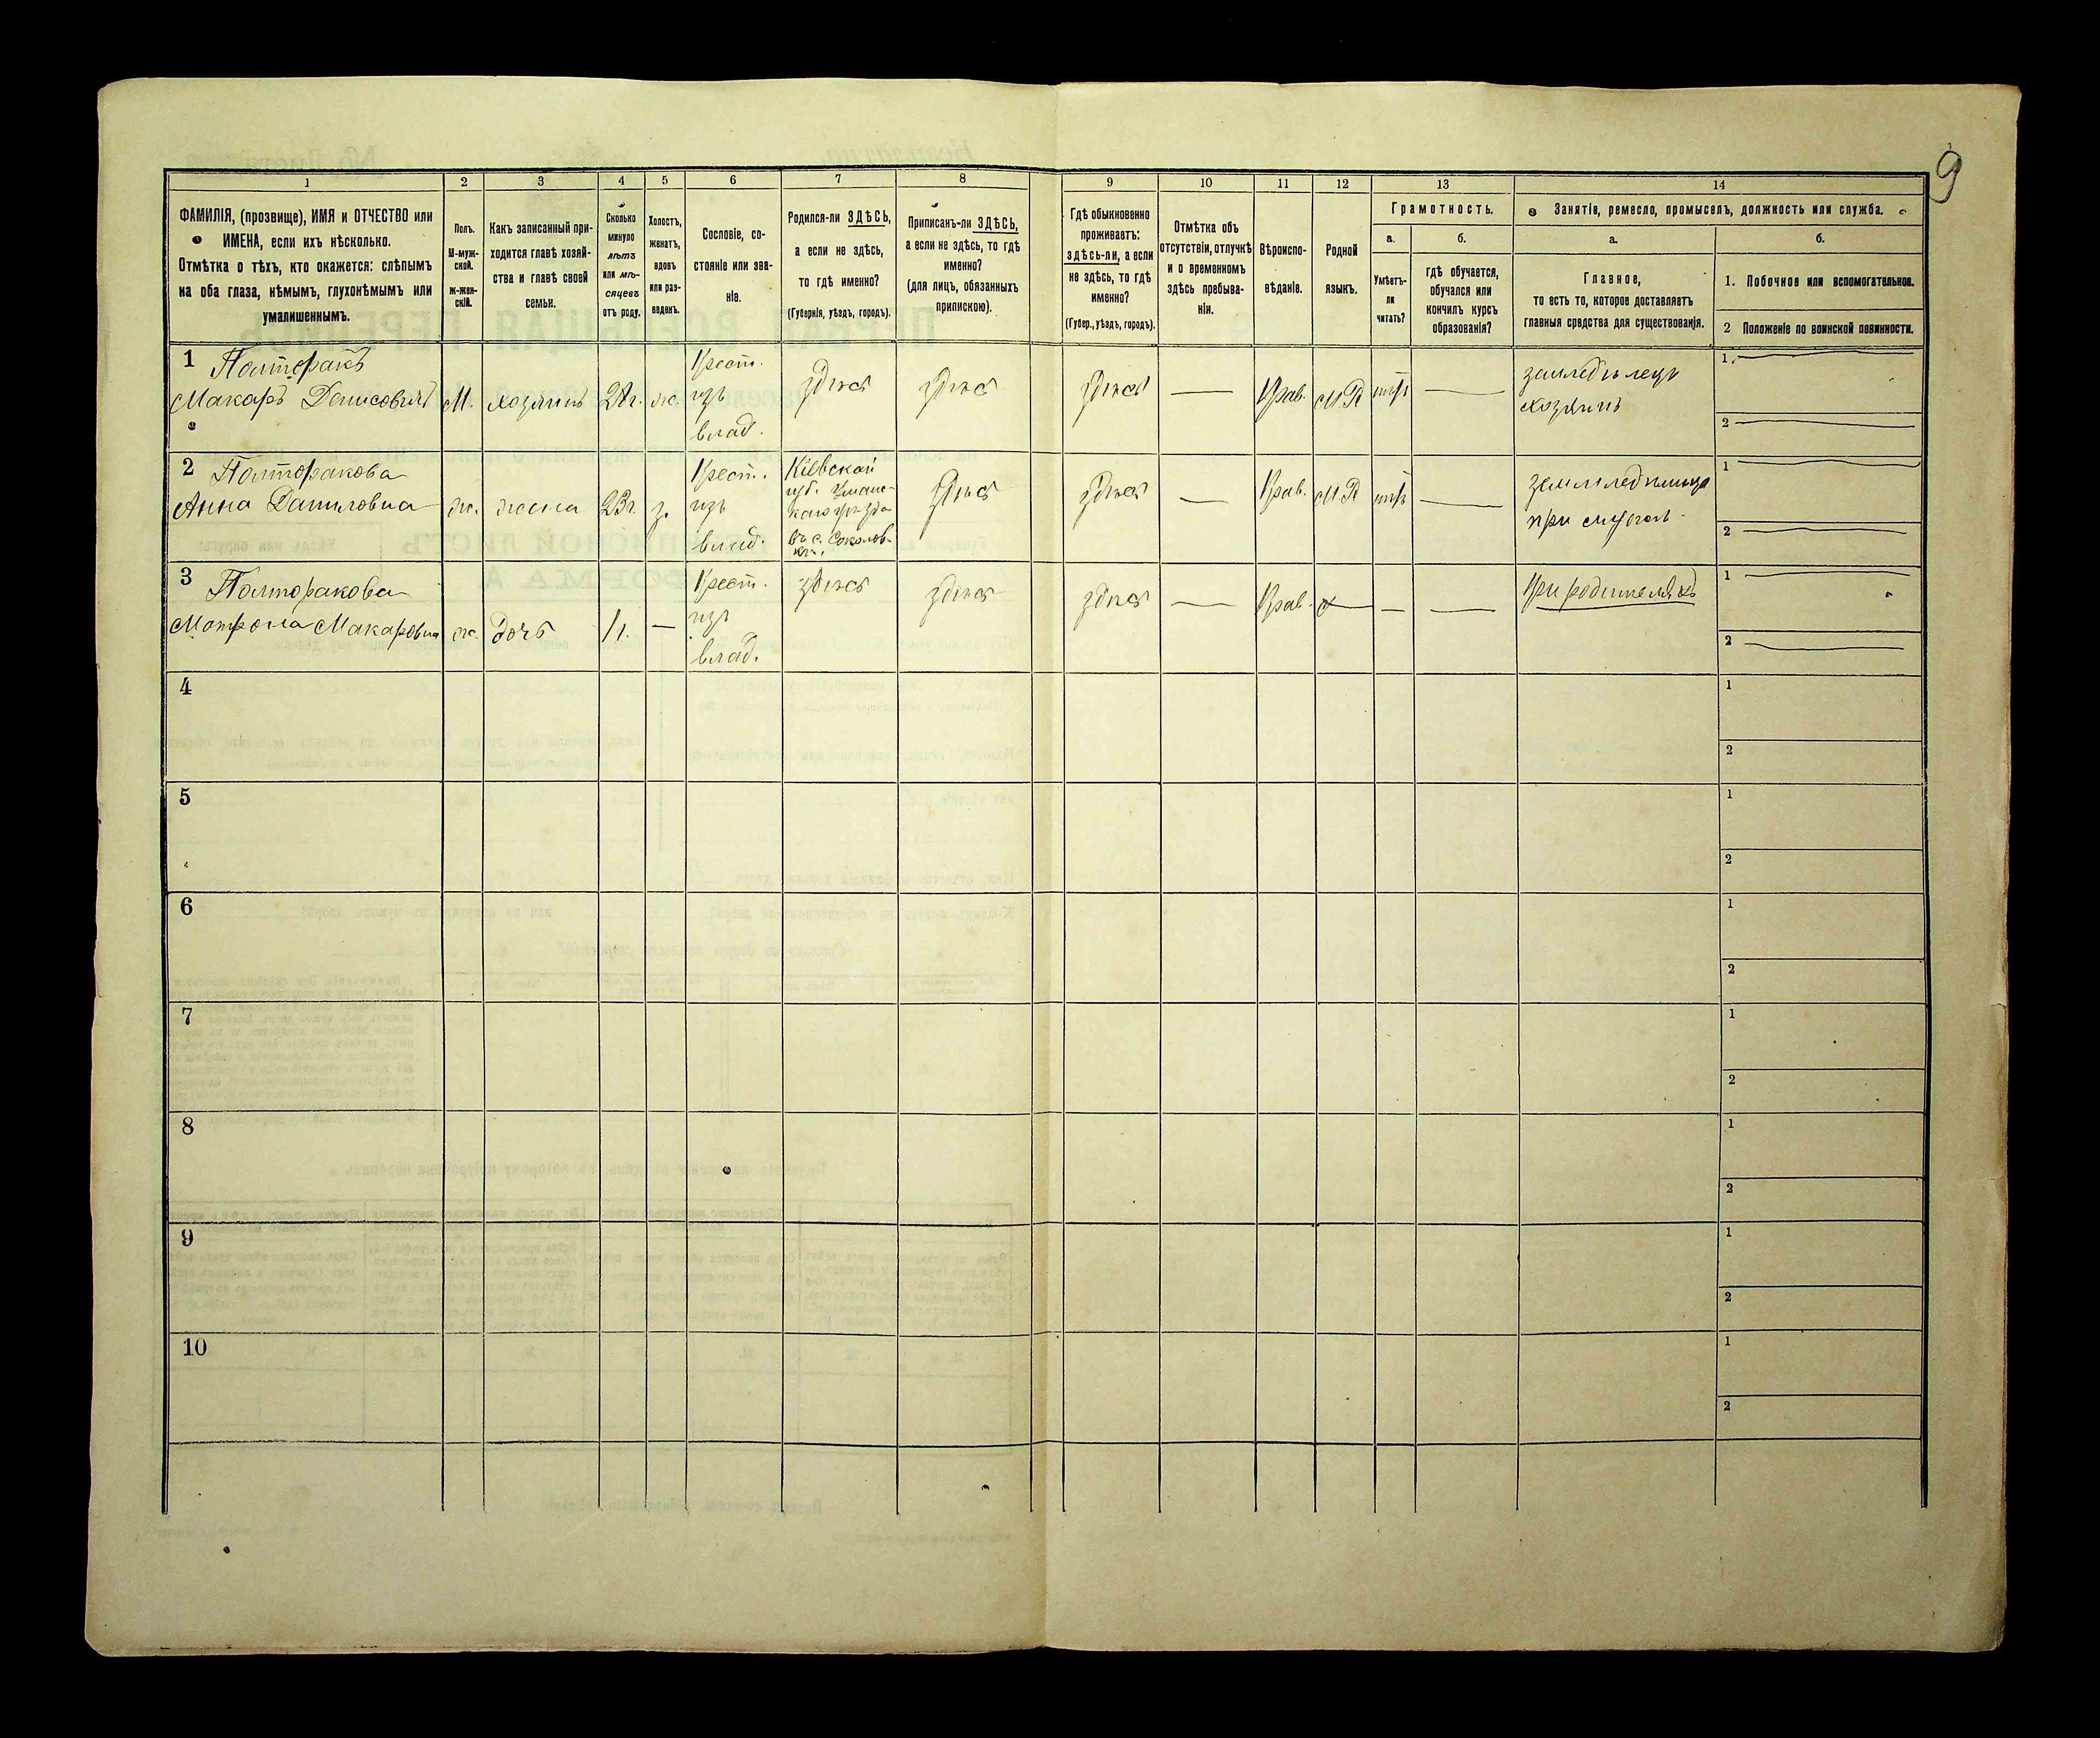 9
1 2 3 4 5 6 7 8 9 10 11 12 13 14
ФАМИЛІЯ, (прозвище), ИМЯ и ОТЧЕСТВО или
ИМЕНА, если ихъ нѣсколько.
Отмѣтка о тѣхъ, кто окажется: слѣпымъ
на оба глаза, нѣмымъ, глухонѣмымъ или
умалишеннымъ.
Полъ.
М-муж-
ской.
ж-жен-
скій.
Какъ записанный при-
ходится главѣ хозяй-
ства и главѣ своей
семьи.
Сколько
минуло
лѣтъ
или мѣ-
сяцевъ
отъ роду.
Холостъ,
женатъ,
вдовъ
или раз-
веденъ.
Сословіе, со-
стояніе или зва-
ніе.
Родился-ли ЗДѢСЬ,
а если не здѣсь,
то гдѣ именно?
(Губернія, уѣздъ, городъ).
Приписанъ-ли ЗДѢСЬ,
а если не здѣсь, то гдѣ
именно?
(для лицъ, обязанныхъ
припискою).
Гдѣ обыкновенно
проживаетъ:
здѣсь-ли, а если
не здѣсь, то гдѣ
именно?
(Губер., уѣздъ, городъ).
Отмѣтка объ
отсутствіи, отлучкѣ
и о временномъ
здѣсь пребыва-
ніи.
Вѣроиспо-
вѣданіе.
Родной
языкъ.
Грамотность.
а.
Умѣетъ-
ли
читать?
б.
гдѣ обучается,
обучался или
кончилъ курсъ
образованія?
Занятіе, ремесло, промыселъ, должность или служба.
а.
Главное,
то есть то, которое доставляетъ
главныя средства для существованія.
б.
1. Побочное или вспомогательное.
2 Положеніе по воинской повинности.
1 Полторакъ
Макаръ Денисовичъ
М.
хозяинъ
ж.
Крест.
изъ
влад.
здѣсь
здѣсь
здѣсь
Прав.
М.Р
земледѣлецъ
хозяинъ
1.
2
2 Полторакова
Анна Даниловна
ж.
жена
23г.
з.
Крест.
изъ
влад.
Кіевской
губ. Уманс-
каго уѣзда
въ с. Соколов-
кѣ.
здѣсь
здѣсь
Прав.
М.Р
земледѣлица
при мужѣ
1
2
3 Полторакова
Мотрона Макаровна
ж.
дочь
1г.
Крест.
изъ
влад.
здѣсь
здѣсь
здѣсь
Прав.
При родителяхъ
1
2
4
1
2
5
1
2
6
1
2
7
1
2
8
1
2
9
1
2
10
1
2